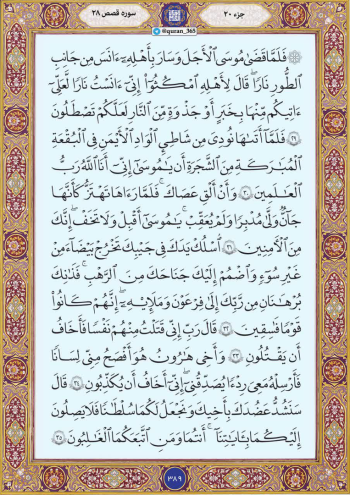 جزء ۲۰
سوره قصص ۲۸
@quran_365
فَلَمَّا قَضَىٰ مُوسَى ٱلْأَجَلَ وَسَارَ بِأَهْلِهِۦٓ ءَانَسَ مِن جَانِبِ
ٱلطُّورِ نَارًاۖ قَالَ لِأَهْلِهِ ٱمْكُثُوٓا۟ إِنِّىٓ ءَانَسْتُ نَارًا لَّعَلِّىٓ
ءَاتِيكُم مِّنْهَا بِخَبَرٍ أَوْ جَذْوَةٍ مِّنَ ٱلنَّارِ لَعَلَّكُمْ تَصْطَلُونَ
۲۹ فَلَمَّآ أَتَىٰهَا نُودِىَ مِن شَٰطِئِ ٱلْوَادِ ٱلْأَيْمَنِ فِى ٱلْبُقْعَةِ
ٱلْمُبَٰرَكَةِ مِنَ ٱلشَّجَرَةِ أَن يَٰمُوسَىٰٓ إِنِّىٓ أَنَا ٱللَّهُ رَبُّ
ٱلْعَٰلَمِينَ ۳۰ وَأَنْ أَلْقِ عَصَاكَۖ فَلَمَّا رَءَاهَا تَهْتَزُّ كَأَنَّهَا
جَآنٌّ وَلَّىٰ مُدْبِرًا وَلَمْ يُعَقِّبْۚ يَٰمُوسَىٰٓ أَقْبِلْ وَلَا تَخَفْۖ إِنَّكَ
مِنَ ٱلْءَامِنِينَ ۳۱ ٱسْلُكْ يَدَكَ فِى جَيْبِكَ تَخْرُجْ بَيْضَآءَ مِنْ
غَيْرِ سُوٓءٍ وَٱضْمُمْ إِلَيْكَ جَنَاحَكَ مِنَ ٱلرَّهْبِۖ فَذَٰنِكَ
بُرْهَٰنَانِ مِن رَّبِّكَ إِلَىٰ فِرْعَوْنَ وَمَلَإِي۟هِۦٓۚ إِنَّهُمْ كَانُوا۟
قَوْمًا فَٰسِقِينَ ۳۲ قَالَ رَبِّ إِنِّى قَتَلْتُ مِنْهُمْ نَفْسًا فَأَخَافُ
أَن يَقْتُلُونِ ۳۳ وَأَخِى هَٰرُونُ هُوَ أَفْصَحُ مِنِّى لِسَانًا
فَأَرْسِلْهُ مَعِىَ رِدْءًا يُصَدِّقُنِىٓۖ إِنِّىٓ أَخَافُ أَن يُكَذِّبُونِ ۳۴ قَالَ
سَنَشُدُّ عَضُدَكَ بِأَخِيكَ وَنَجْعَلُ لَكُمَا سُلْطَٰنًا فَلَا يَصِلُونَ
إِلَيْكُمَا بِـَٔايَٰتِنَآۚ أَنتُمَا وَمَنِ ٱتَّبَعَكُمَا ٱلْغَٰلِبُونَ ۳۵
۳۸۹